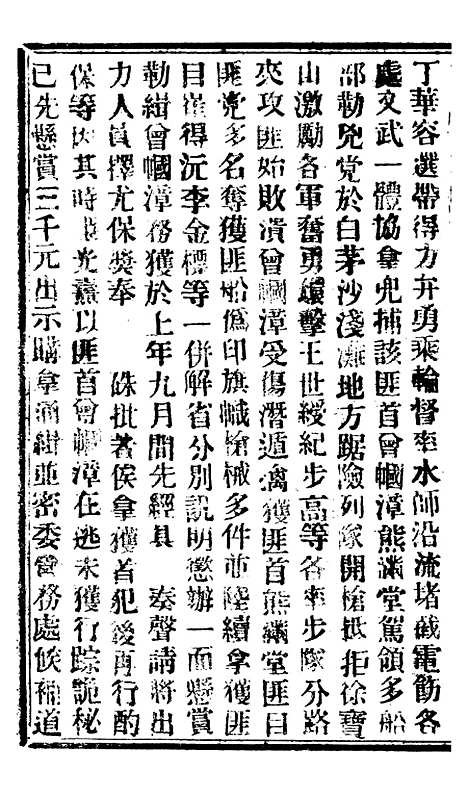 丁華容選帶得力弁勇乘輪督率水師沿流堵截電飭各
處文武一體協拿兜捕該匪首曾幗漳熊繡堂駕領多船
部勒兇党於白茅沙淺灘地方踞險列隊開槍抵拒徐寶
山激勵各軍奮勇轟擊王世綬紀步高等各率步隊分路
夾攻匪始敗潰曾幗漳受傷潛遁擒獲匪首熊繡堂匪目
匪党多名奪獲匪船僞印旗幟槍械多件並陸續拿獲匪
目崔得沅李金標等一併解省分別訊明懲辦一面懸賞
勒緝曾幗漳務獲於上年九月間先經具　奏聲請將出
力人員擇尤保獎奉　　硃批著俟拿獲首犯後再行酌
保等因其時光燾以匪首曾幗漳在逃未獲行踪詭秘
已先懸賞三千元出示購拿通緝並密委營務處候補道